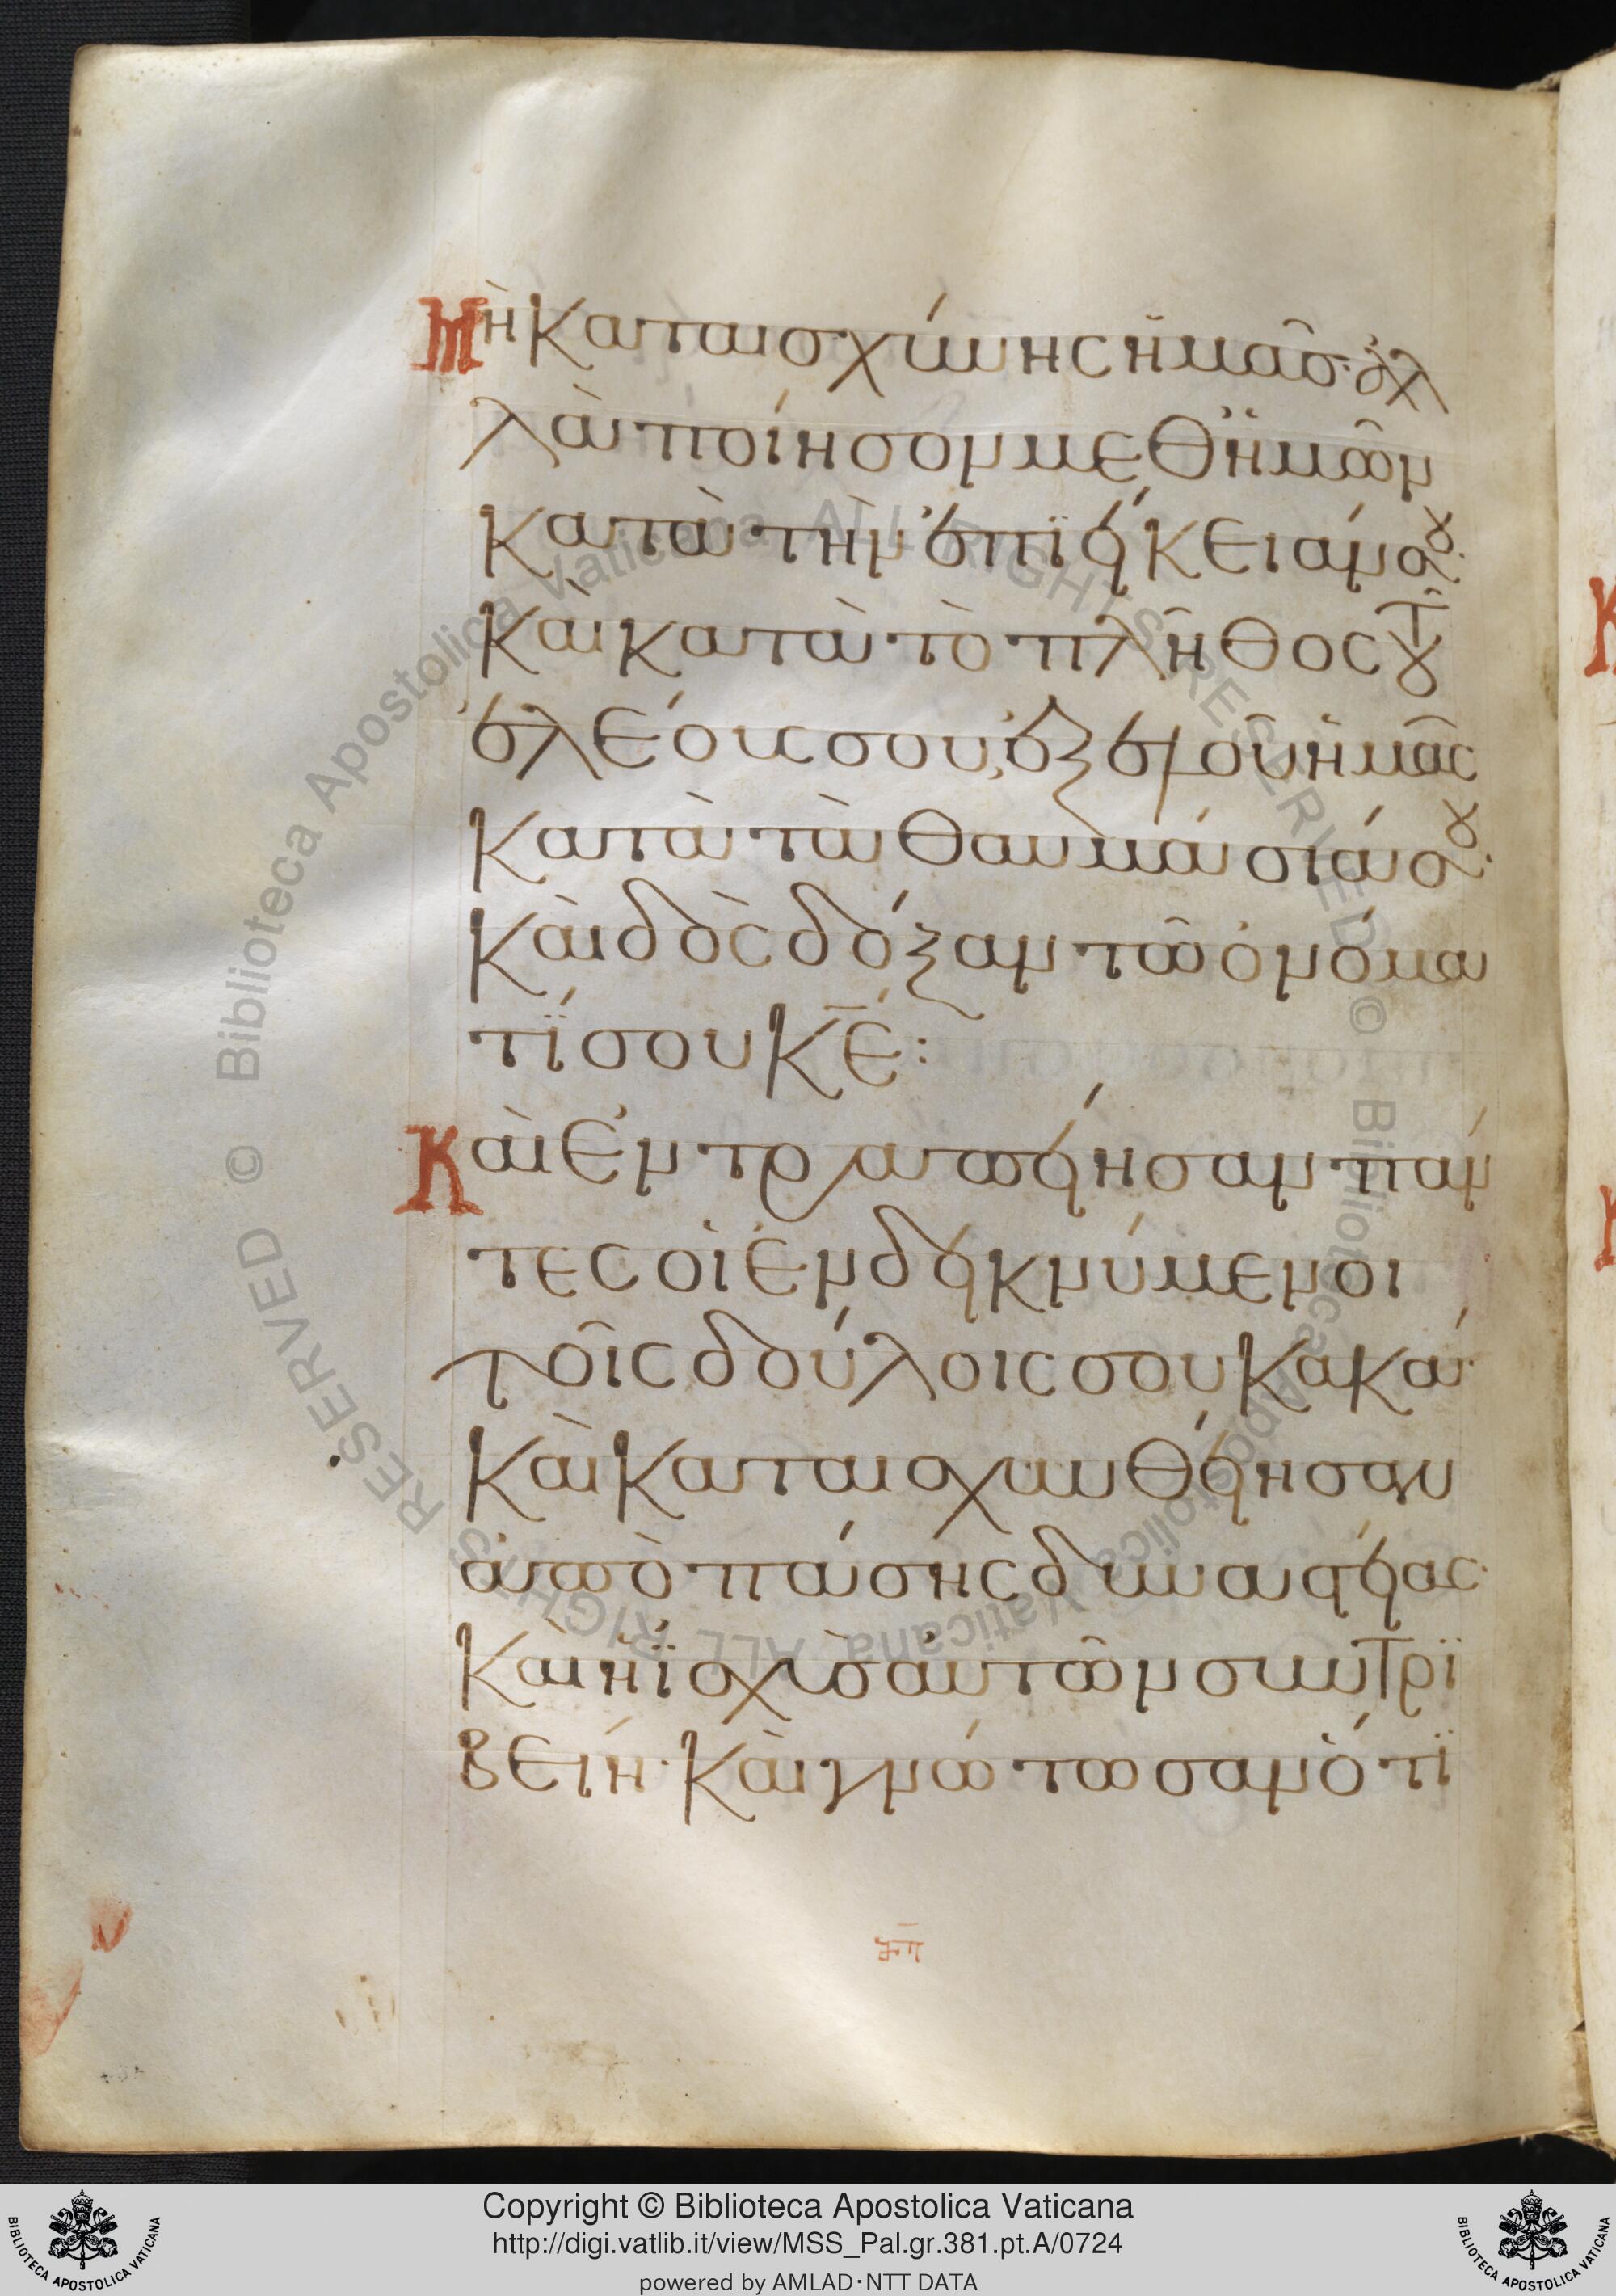 Μὴ καταισχύνης ἡμᾶσ· ἀλ
λὰ ποίησον μεθ ἡμῶν
κατὰ τὴν ἐπϊείκειάν σου·
Καὶ κατὰ τὸ πλῆθος τοῦ
ἐλέους σου, ἐξελοῦ ἡμᾶς
κατὰ τὰ θαυμάσιά σου·
Καὶ δὸς δόξαν τῶ ὀνόμα
τί σου κ̅ε̅:
Καὶ ἐντραπείησαν πάν
τες οἱ ἐνδεικνύμενοι
τοῖς δούλοις σου κακά·
Καὶ καταισχυνθείησαν
ἀπὸ πάσης δυναστείας·
Καὶ ἡ ϊσχὺσ αὐτῶν συντρϊ
βείη· Καὶ γνώτωσαν ὅτϊ
Copyright © Biblioteca Apostolica Vaticana
http://digi.vatlib.it/view/MSS_Pal.gr.381.pt.A/0724
powered by AMLAD·NTT DATA
BIBLIOTECA APOSTOLICA VATICANA
BIBLIOTECA APOSTOLICA VATICANA
© Biblioteca Apostolica Vaticana ALL RIGHTS RESERVED
© Biblioteca Apostolica Vaticana ALL RIGHTS RESERVED